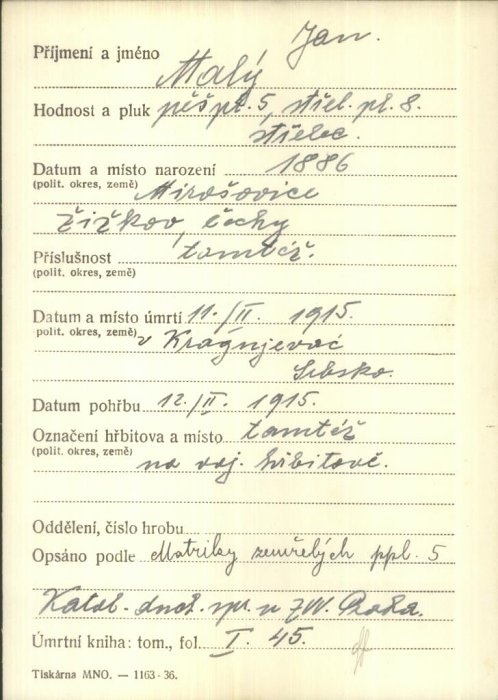 Jan.
Příjmení a jméno Malý
Hodnost a pluk pěš. pl. 5, střel. pl. 8.
střelec.
Datum a místo narození 1886
(polit. okres, země) Mirošovice
Žižkov, Čechy
Příslušnost tamtéž.
(polit. okres, země)
Datum a místo úmrtí 11./II. 1915.
polit. okres, země) v Kragujevač
Srbsko.
Datum pohřbu 12./II. 1915.
Označení hřbitova a místo tamtéž
(polit. okres, země)
na voj. hřbitově.
Oddělení, číslo hrobu
Opsáno podle Matriky zemřelých ppl. 5
Katol. duch. spr. u ZVV. Praha.
Úmrtní kniha: tom., fol. I. 45.
Tiskárna MNO. — 1163-36.